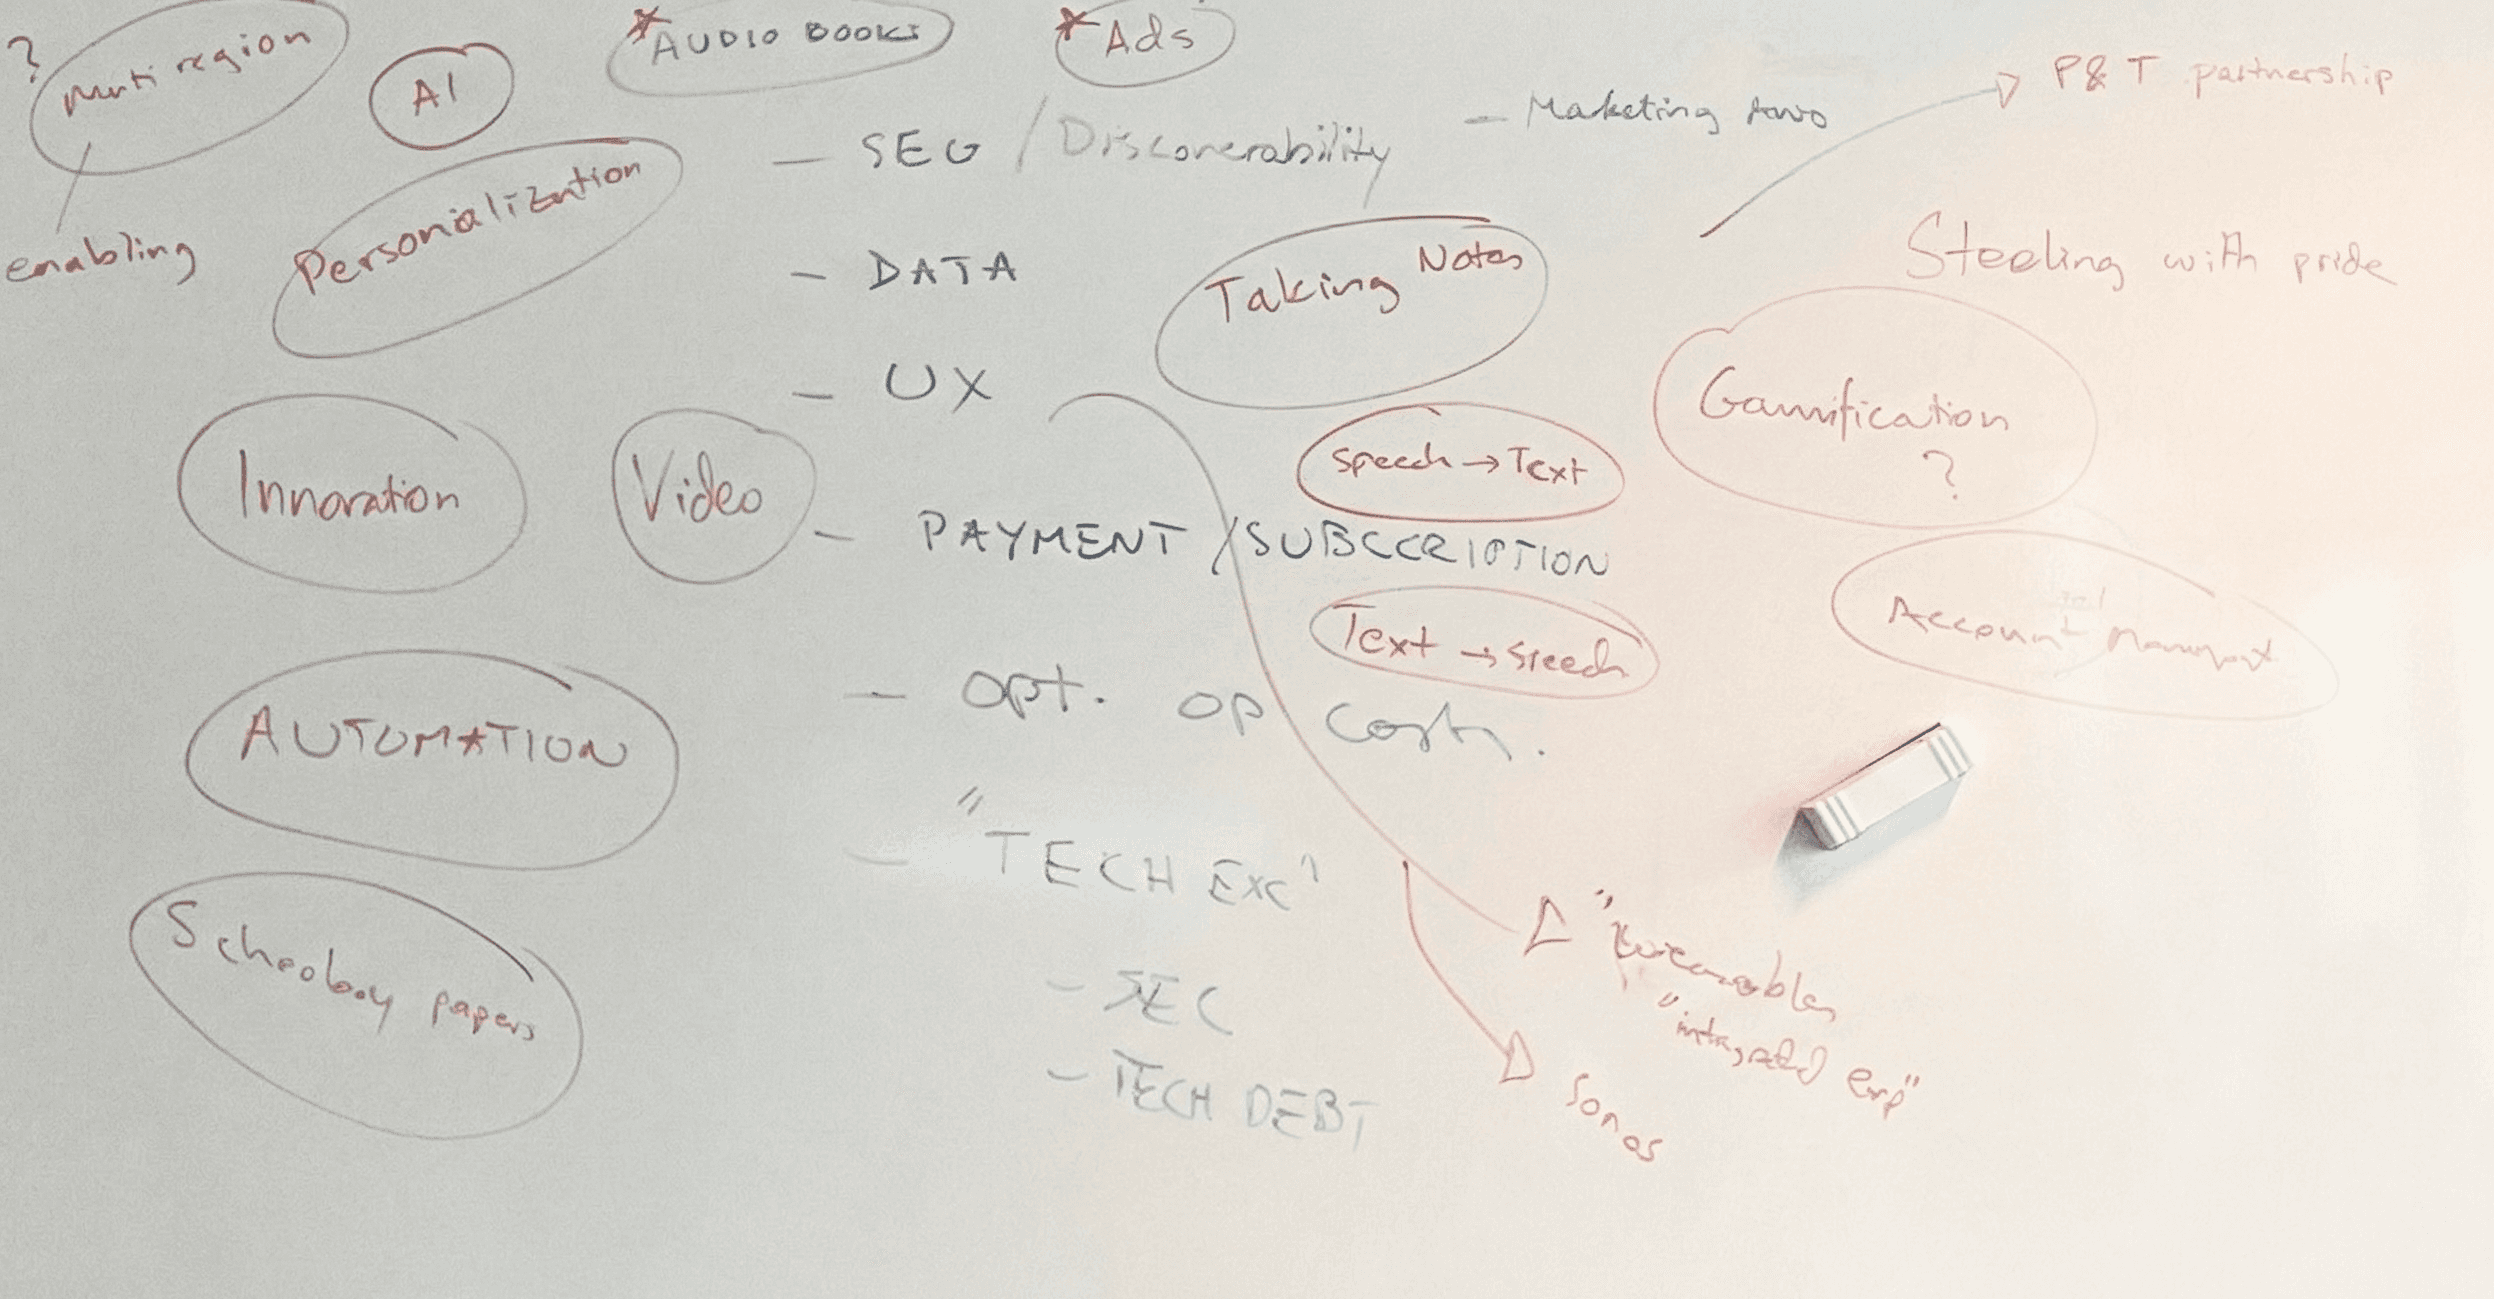 ?
Multi region
enabling
AI
* AUDIO BOOKS
* Ads
Personialization
- SEO / Discoverability
- Marketing
P&T partnership
Steeling with pride
- DATA
Taking Notes
- UX
Gamification
?
Innovation
Video
Speech → Text
- PAYMENT / SUBCCRIPTION
Text → Speech
Account
AUTOMATION
- opt. op costs.
- "TECH EXC"
- SEC
- TECH DEBT
papers
"integrated exp"
Sonos